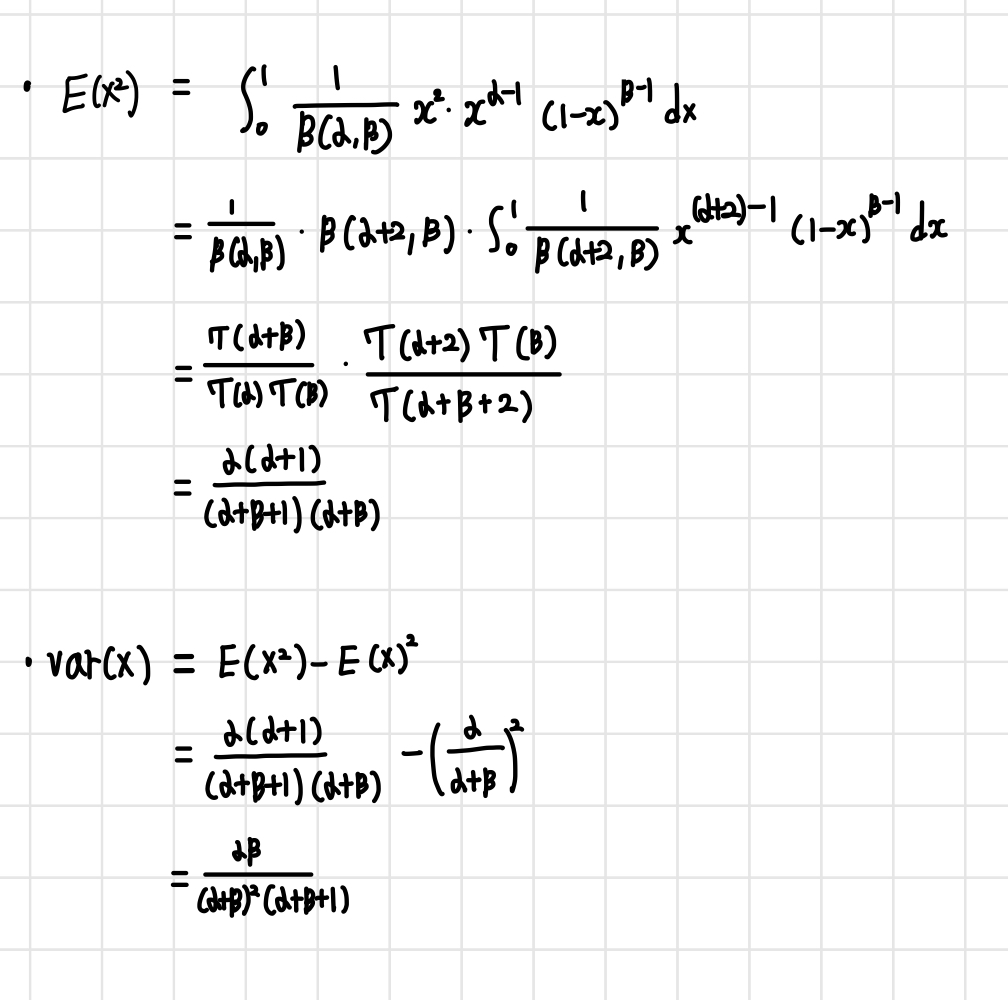 · E(X²) = ∫₀¹ 1/β(α,β) x²· x^(α-1) (1-x)^(β-1) dx
= 1/β(α,β) · β(α+2,β) · ∫₀¹ 1/β(α+2,β) x^((α+2)-1) (1-x)^(β-1) dx
= Γ(α+β)/Γ(α)Γ(β) · Γ(α+2)Γ(β)/Γ(α+β+2)
= α(α+1)/(α+β+1)(α+β)
· var(X) = E(X²) - E(X)²
= α(α+1)/(α+β+1)(α+β) - (α/α+β)²
= αβ/(α+β)²(α+β+1)